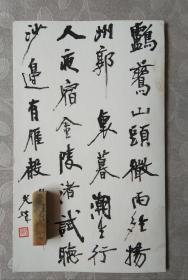 鸕鶿山頭微雨晴揚
州郭裏暮潮生行
人夜宿金陵渚試聽
沙邊有雁聲